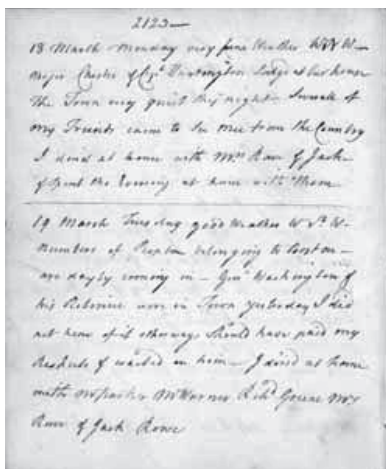 2123—
18 March Monday very fine Weather W & W—
Major Chester & Capt Huntington Lodge at our house
The Town very quiet this night. Severall of
my Friends came to See mee from the Country
I dind at home with Mrs Rowe & Jack
& Spent the Evening at home with Them
19 March Tuesday good Weather W
Numbers of People belonging to Boston—
are dayly coming in — Genl Washington &
his Retinue were in Town yesterday I did
not hear of it otherways Should have paid my
Respects & waited on him — I dined at home
with Mr Warner Richd Greene Mrs
Rowe & Jack Rowe